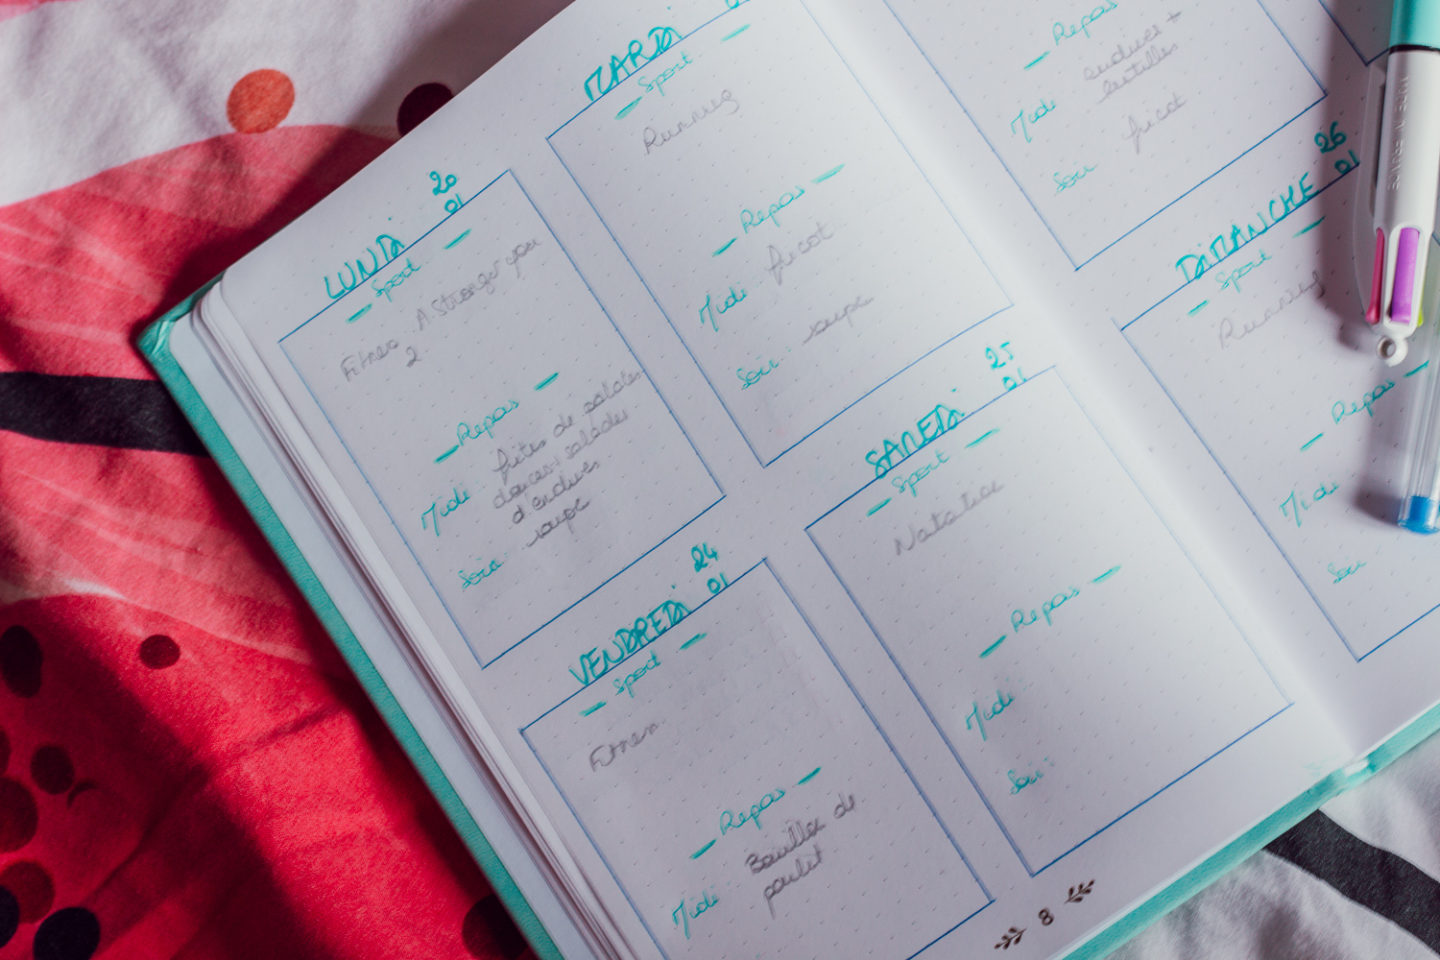 LUNDi
20
01
Sport
Fitness A Stronger you
2
Repas
Midi frites de patates
douces + salade
d'endives
Soir soupe
MARDi
Sport
Running
Repas
Midi fricot
Soir soupe
VENDREDi
24
01
Sport
Fitness
Repas
Midi Bouillon de
poulet
SAMEDi
25
01
Sport
Natation
Repas
Midi
Soir:
8
Repas
Midi endives +
lentilles
Soir fricot
DiMANCHE
26
01
Sport
Running
Repas
Midi
Soir